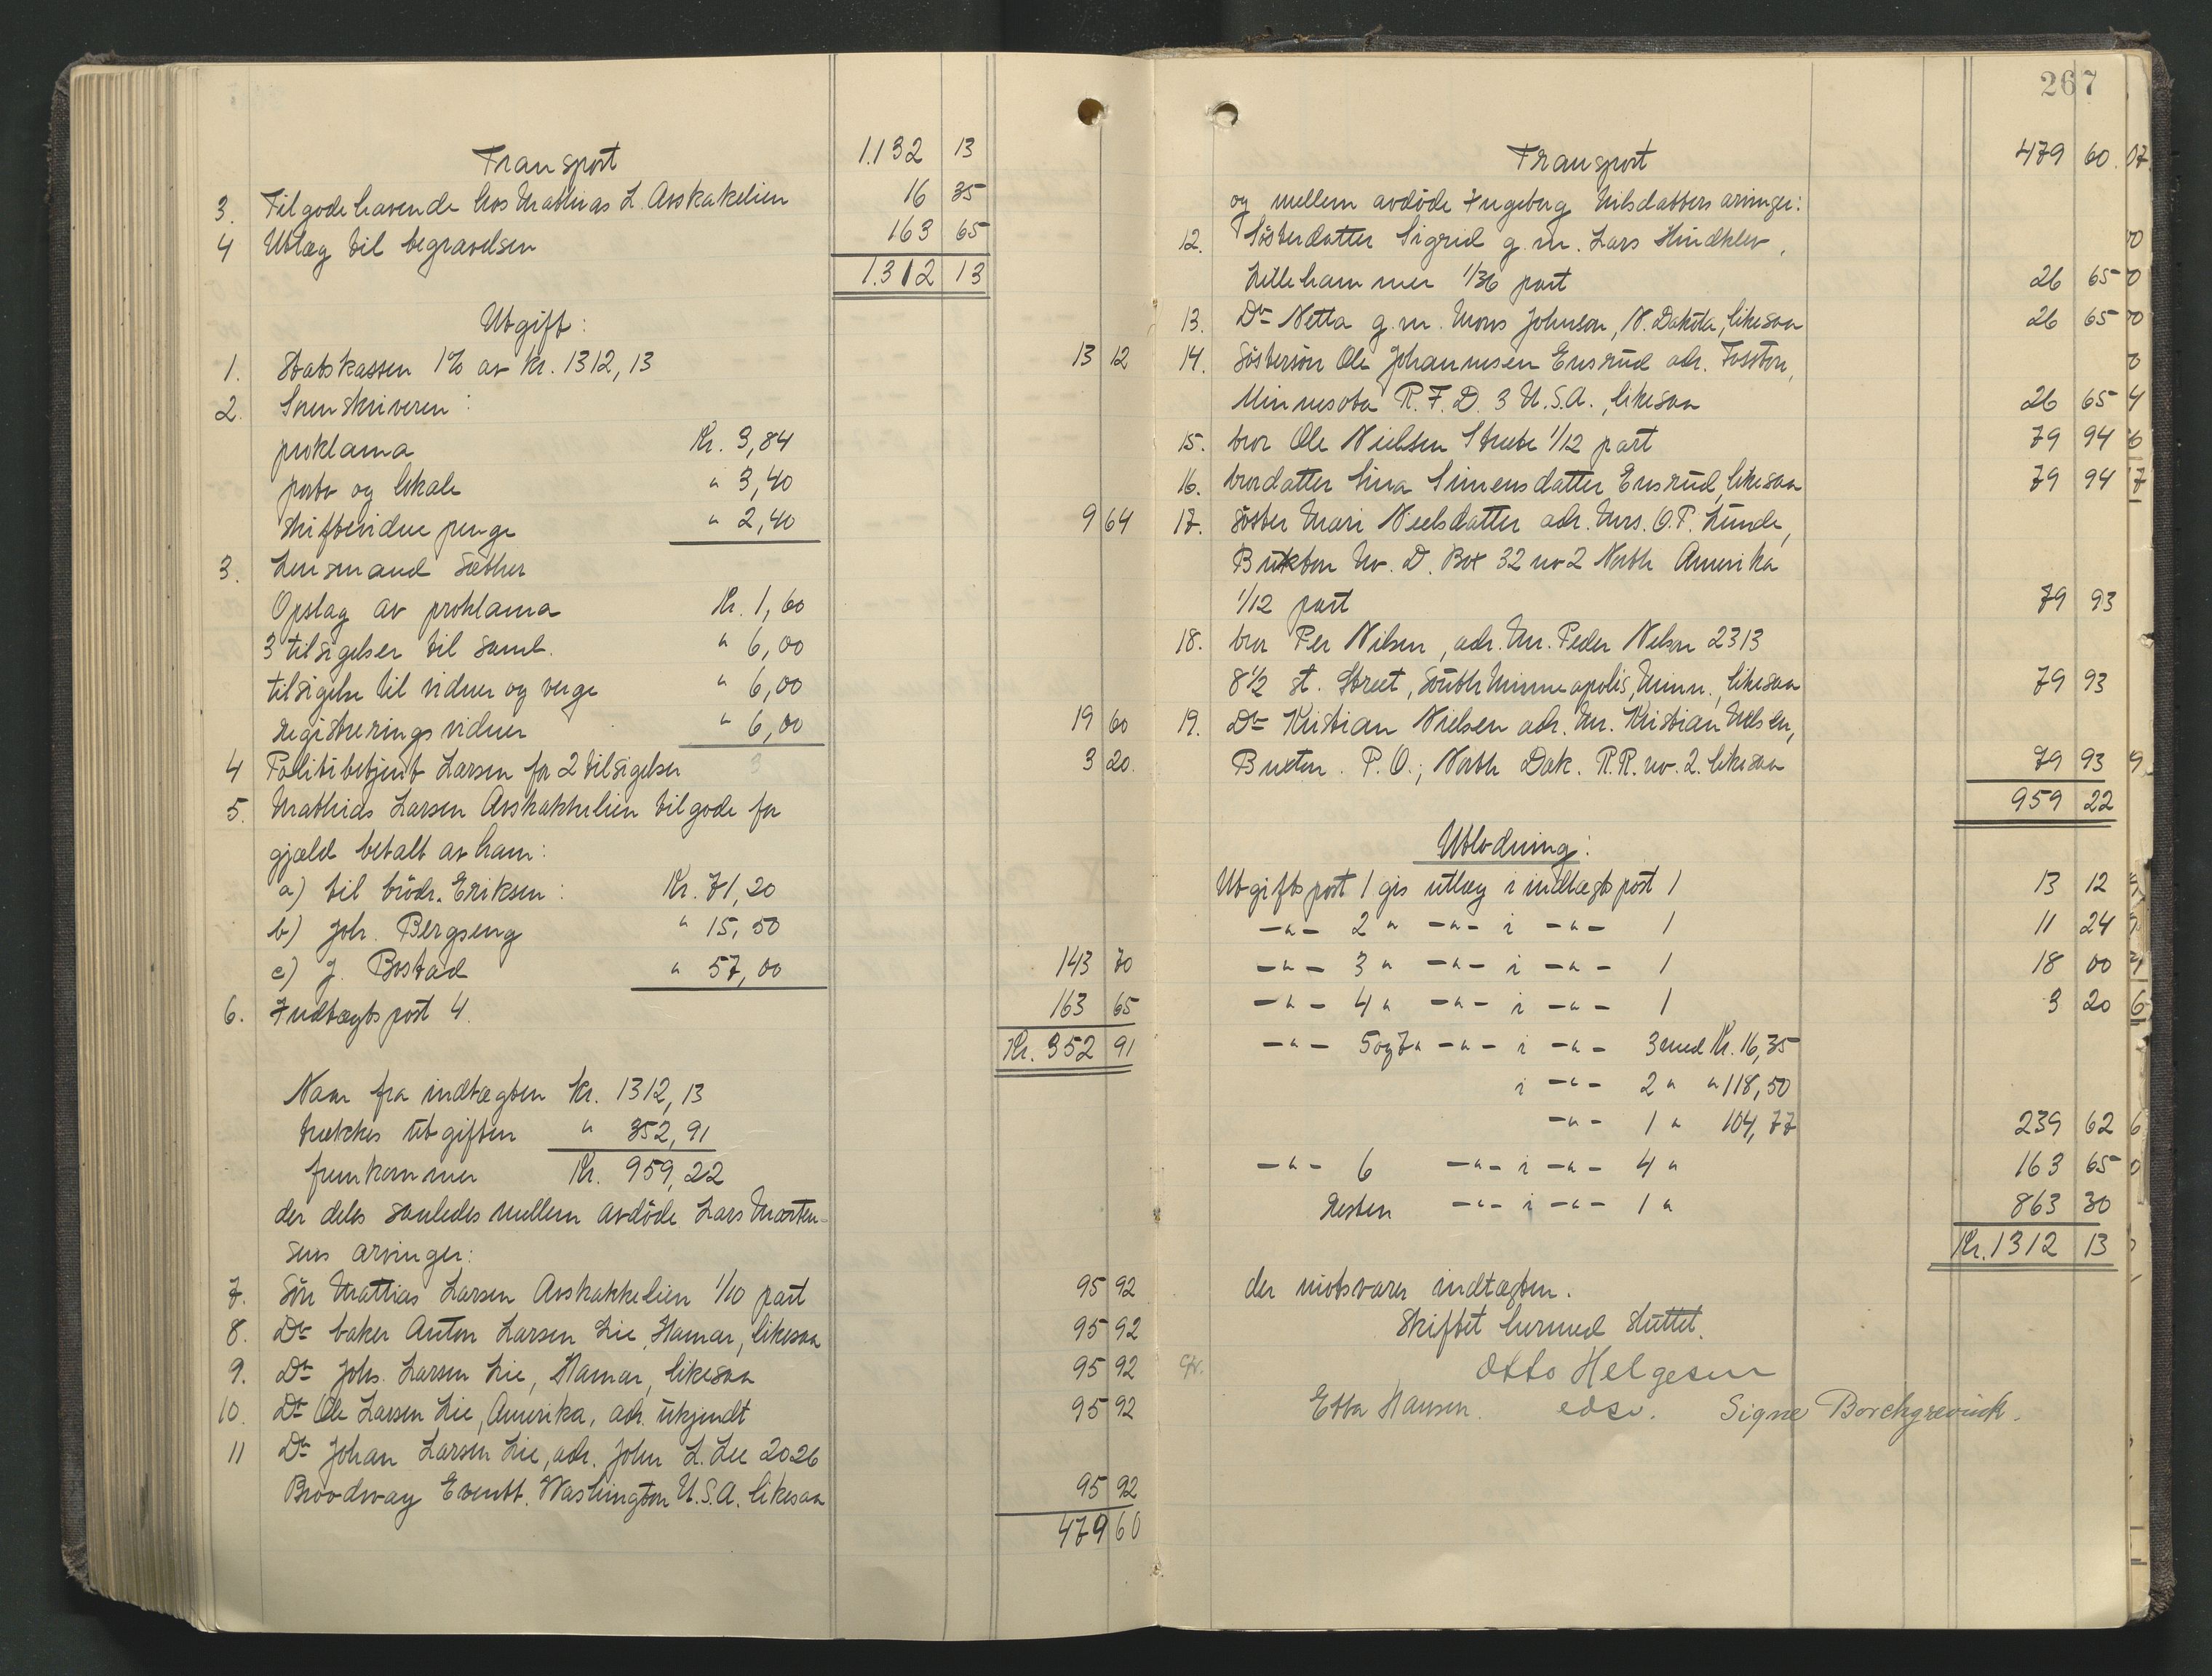 Transport 1.132 13
3. Tilgodehavende hos Mathias L. Avskakelien 16 35
4 Utlæg til begravelsen 163 65
1.312 13
Utgift:
1. Statskassen 1% av kr. 1312,13 13 12
2. Sorenskriveren:
proklama Kr. 3,84
porto og lokale " 3,40
skiftevidne penge " 2,40 9 64
3. Lensmand Sæther
Opslag av proklama Kr. 1,60
3 tilsigelser til saml. " 6,00
tilsigelse til vidner og verge " 6,00
registreringsvidner " 6,00 19 60
4 Politibetjent Larsen for 2 tilsigelser 3 20
5. Mathias Larsen Avskakkelien tilgode for
gjæld betalt av ham:
a) til brödr. Eriksen: Kr. 71,20
b) Joh. Bergseng " 15,50
c) J. Bostad " 57,00 143 70
6. Indtægtspost 4. 163 65
Kr. 352 91
Naar fra indtægten Kr. 1312,13
trækkes utgiften " 352,91
fremkommer Kr. 959,22
der deles saaledes mellem avdöde Lars Morten-
sens arvinger:
7. Sön Mattias Larsen Avskakkelien 1/10 part 95 92
8. Do baker Anton Larsen Lie, Hamar, likesaa 95 92
9. Do Johs. Larsen Lie, Hamar, likesaa 95 92
10. Do Ole Larsen Lie, Amerika, adr. ukjendt 95 92
11 Do Johan Larsen Lie, adr. John L. Lee 2026
Broodway Everett. Washington U.S.A. likesaa 95 92
479 60
267
Transport 479 60
og mellem avdöde Ingeborg Nilsdatters arvinger:
12. Sösterdatter Sigrid g.m. Lars Hindklev,
Lillehammer 1/36 part 26 65
13. Do Netta g.m. Mons Johnson, N. Dakota, likesaa 26 65
14. Söstersön Ole Johannesen Ensrud adr. Fosston,
Minnesota R.F.D. 3 U.S.A., likesaa 26 65
15. bror Ole Nielsen 1/12 part 79 94
16. brordatter Lina Simensdatter Ensrud, likesaa 79 94
17. söster Mari Nielsdatter adr. Mrs. O.P. Lunde,
Buxton No. D. Box 32 no 2 North Amerika
1/12 part 79 93
18. bror Per Nilsen, adr. Mr. Peder Nelson 2313
8 1/2 st. Street, South Minneapolis, Minn., likesaa 79 93
19. Do Kristian Nielsen adr. Mr. Kristian Nelsen,
Buxton. P.O., North Dak. R.R. no. 2. likesaa 79 93
959 22
Utlodning:
Utgiftspost 1 gis utlæg i indtægtspost 1 13 12
-"- 2 " -"- i -"- 1 11 24
-"- 3 " -"- i -"- 1 18 00
-"- 4 " -"- i -"- 1 3 20
-"- 5 og 7 " -"- i -"- 3 med Kr. 16,35
i -"- 2 " " 118,50
-"- 1 " 104,77 239 62
-"- 6 -"- i -"- 4 " 163 65
Resten -"- i -"- 1 " 863 30
Kr. 1312 13
der motsvarer indtægten.
Skiftet hermed sluttet.
Otto Helgesen
edsv.
Etta Hansen. Signe Borchgrevink.